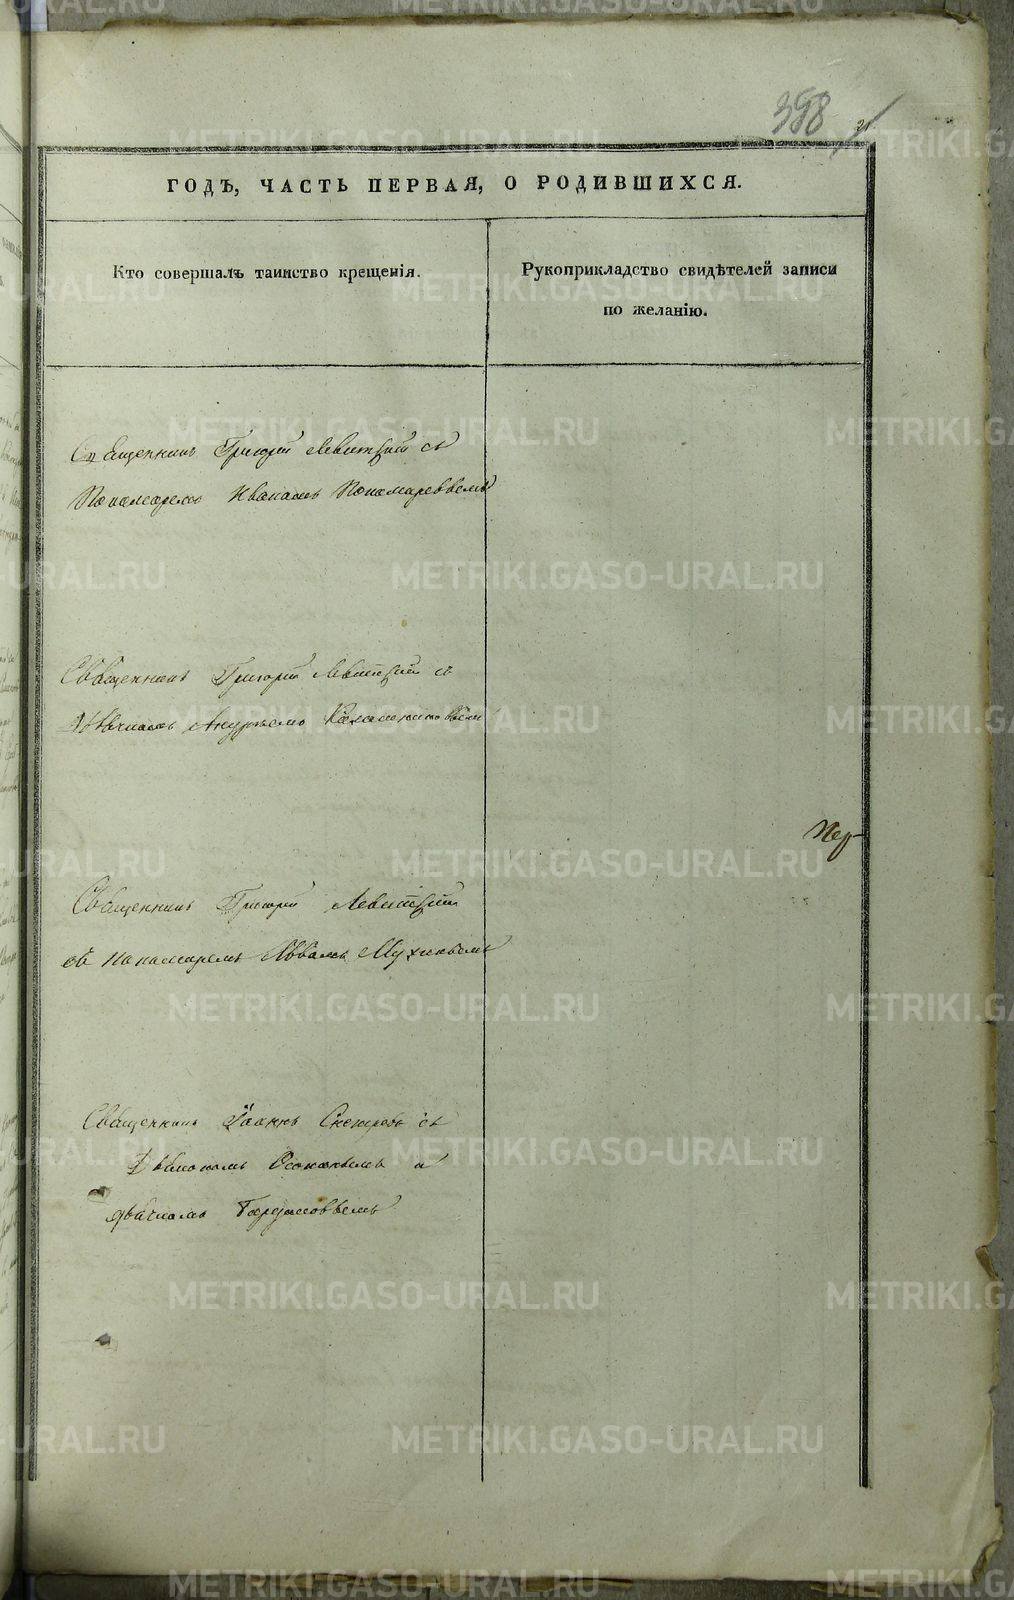 358
ГОДЪ, ЧАСТЬ ПЕРВАЯ, О РОДИВШИХСЯ.
Кто совершалъ таинство крещенія.
Рукоприкладство свидѣтелей записи
по желанію.
Священникъ Григорій Левитскій съ
Пономаремъ Иваномъ Пономаревымъ
Священникъ Григорій Левитскій съ
Дьячкомъ
Священникъ Григорій Левитскій
съ Пономаремъ Львомъ Мухинымъ
Священникъ Іоаннъ съ
Діакономъ и
дьячкомъ
METRIKI.GASO-URAL.RU